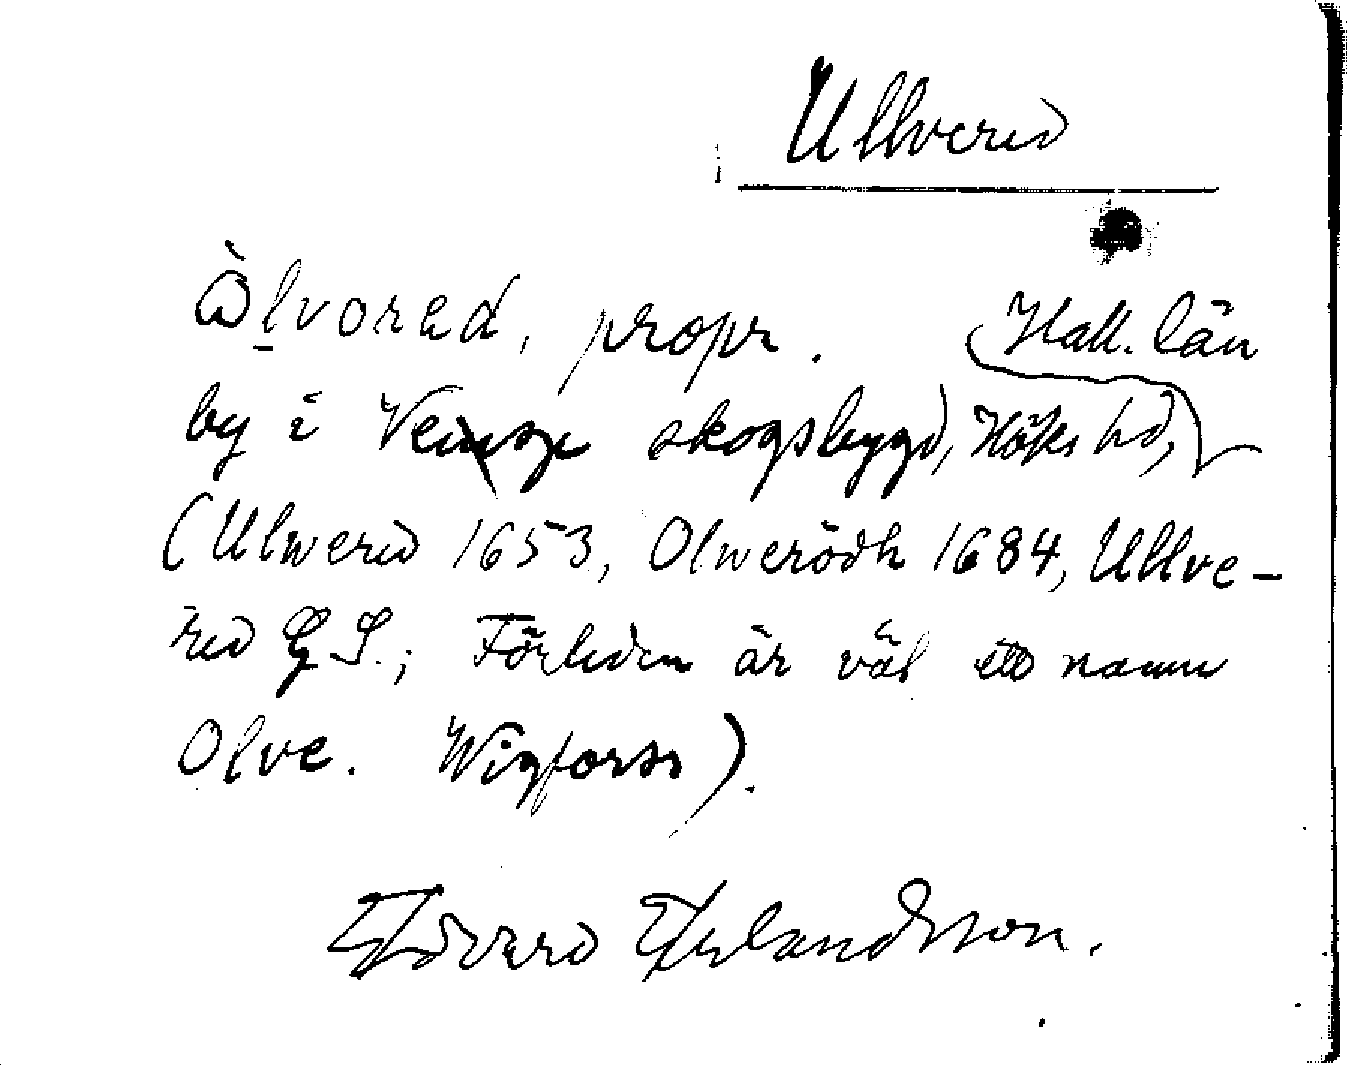 Ullvered
 Òlvorɛd, propr. Hall. län
by i Veinge skogsbygd, Höks hd,
(Ulwered 1653, Olwerödh 1684, Ullve-
red G.S.; Förleden är väl ett namn
Olve. Wigforss).
Edvard Erlandsson.